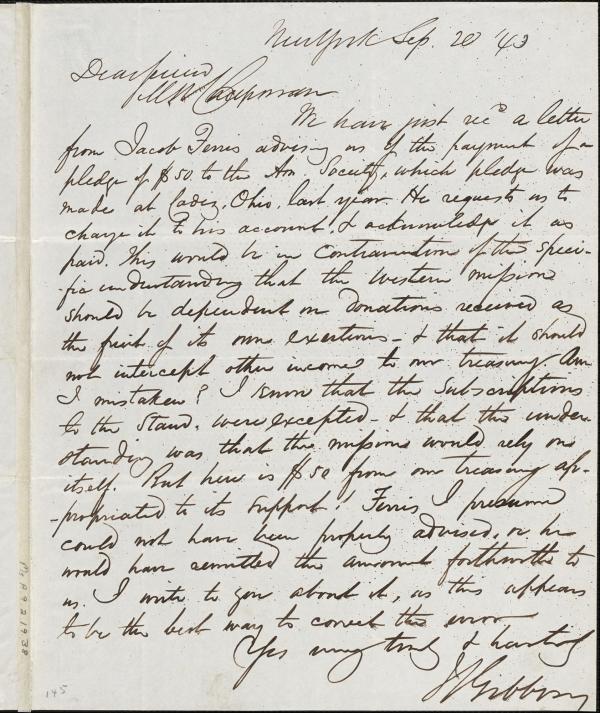 New York Sep. 20 '43
Dear friend
M W Chapman
We have just rec'd a letter
from Jacob Ferris advising us of the payment of a
pledge of $50. to the Am. Society, which pledge was
made at Cadiz, Ohio, last year. He requests us to
charge it to his account, & acknowledge it as
paid. This would be in contravention of the speci-
fic understanding that the western mission
should be dependent on donations received as
the fruit of its own exertions - & that it should
not intercept other income to our treasury. Am
I mistaken? I know that the subscriptions
to the Stand. were excepted - & that the under-
standing was that the missions would rely on
itself. But here is $50 from our treasury ap-
-propriated to its support! Ferris I presume
could not have been properly advised, or he
would have remitted the amount forthwith to
us. I write to you about it, as this appears
to be the best way to correct the error
Yrs very truly & heartily
J S Gibbons
145